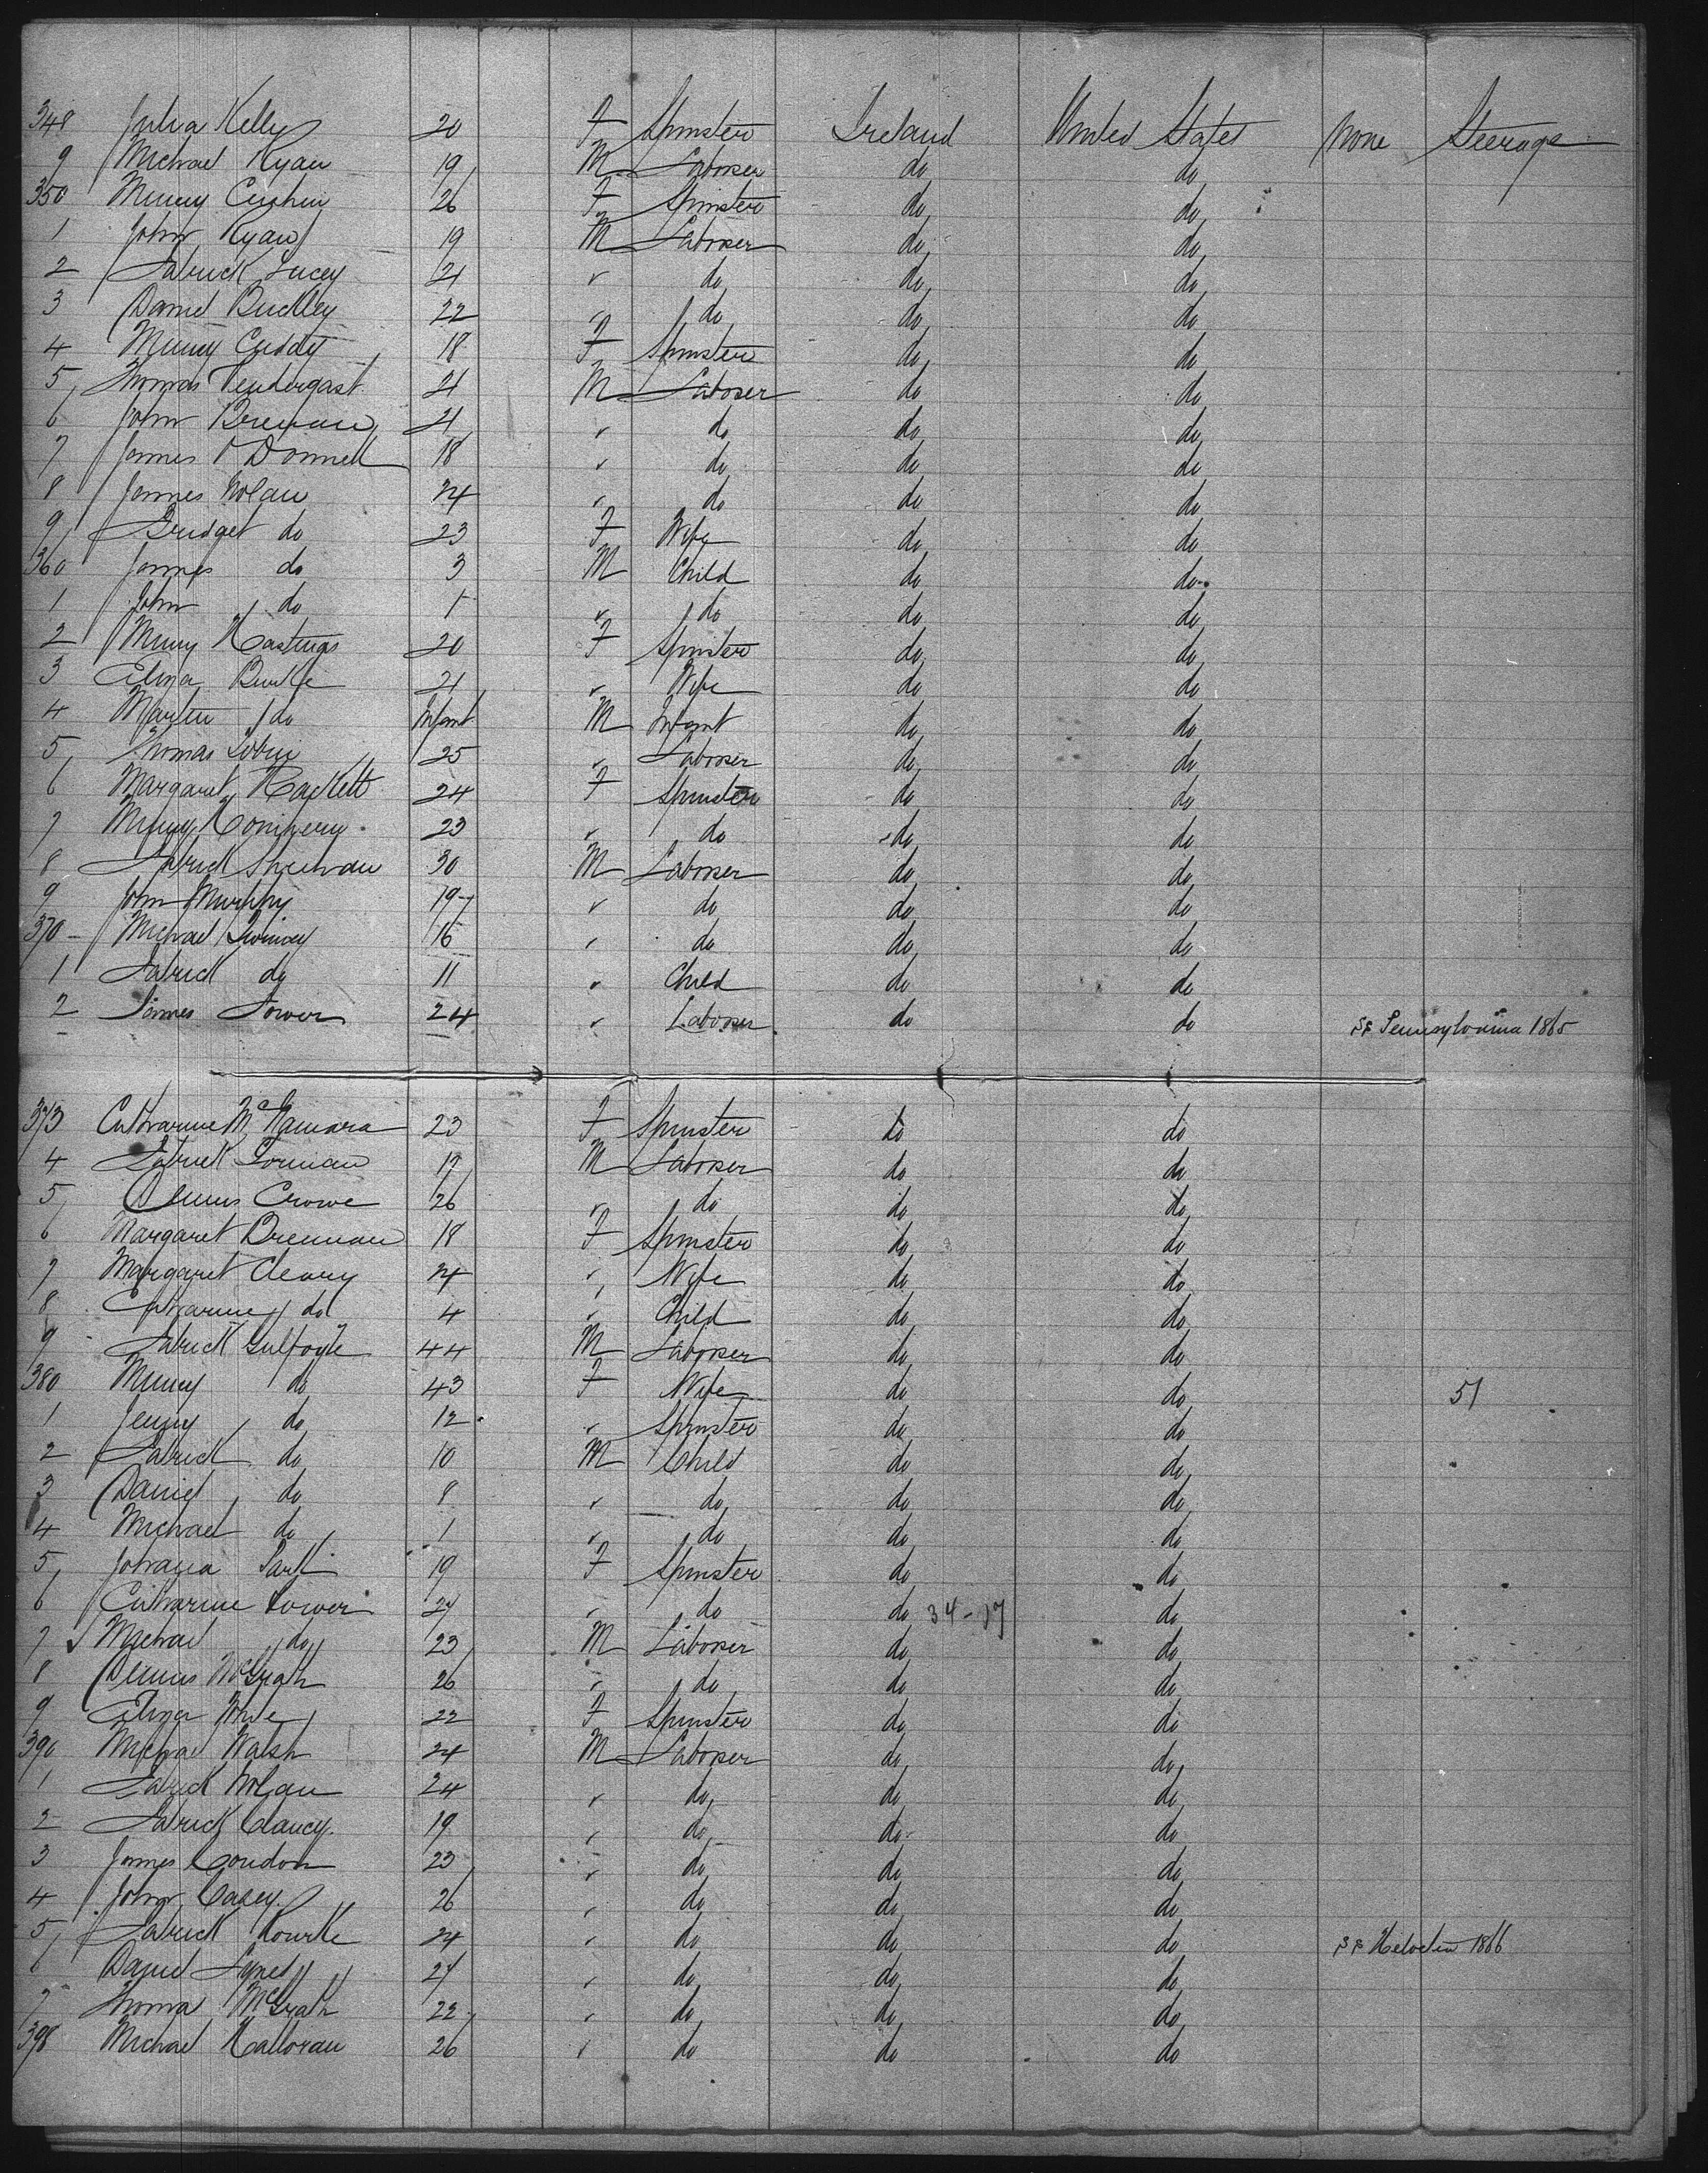 348 Julia Kelly 20 F Spinster Ireland United States None Steerage
9 Michael Ryan 19 M Laborer do do
350 Mary 26 F Spinster do do
1 John Ryan 19 M Laborer do do
2 Patrick Lucey 21 " do do do
3 Daniel Buckley 22 " do do do
4 Mary Cuddy 18 F Spinster do do
5 Thomas Pendergast 21 M Laborer do do
6 John Brennan 21 " do do do
7 James O'Donnell 18 " do do do
8 James Nolan 24 " do do do
9 Bridget do 23 F Wife do do
360 James do 3 M Child do do
1 John do 1 " do do do
2 Mary Hastings 20 F Spinster do do
3 Eliza Burke 21 " Wife do do
4 Martin do Infant M Infant do do
5 Thomas Tobin 25 " Laborer do do
6 Margaret Hackett 24 F Spinster do do
7 Mary 23 " do do do
8 Patrick Sheehan 30 M Laborer do do
9 John Murphy 19 " do do do
370 Michael 16 " do do do
1 Patrick do 11 " Child do do
2 James Power 24 " Laborer do do SS Pennsylvania 1865
373 Catharine McNamara 23 F Spinster do do
4 Patrick Gorman 19 M Laborer do do
5 Dennis Crowe 26 " do do do
6 Margaret Brennan 18 F Spinster do do
7 Margaret Cleary 24 " Wife do do
8 Catharine do 4 " Child do do
9 Patrick Guilfoyle 44 M Laborer do do
380 Mary do 43 F Wife do do 51
1 Jenny do 12 " Spinster do do
2 Patrick do 10 M Child do do
3 Daniel do 8 " do do do
4 Michael do 1 " do do do
5 Johanna 19 F Spinster do do
6 Catharine Power 27 " do do 34-17 do
7 Michael do 23 M Laborer do do
8 Dennis McGrath 26 " do do do
9 Eliza 22 F Spinster do do
390 Michael Walsh 24 M Laborer do do
1 Patrick Nolan 24 " do do do
2 Patrick Clancy 19 " do do do
3 James Condon 23 " do do do
4 John Casey 26 " do do do
5 Patrick Rourke 24 " do do do SS Helvetia 1866
6 Daniel 27 " do do do
7 Thomas McGrath 22 " do do do
398 Michael Halloran 26 " do do do